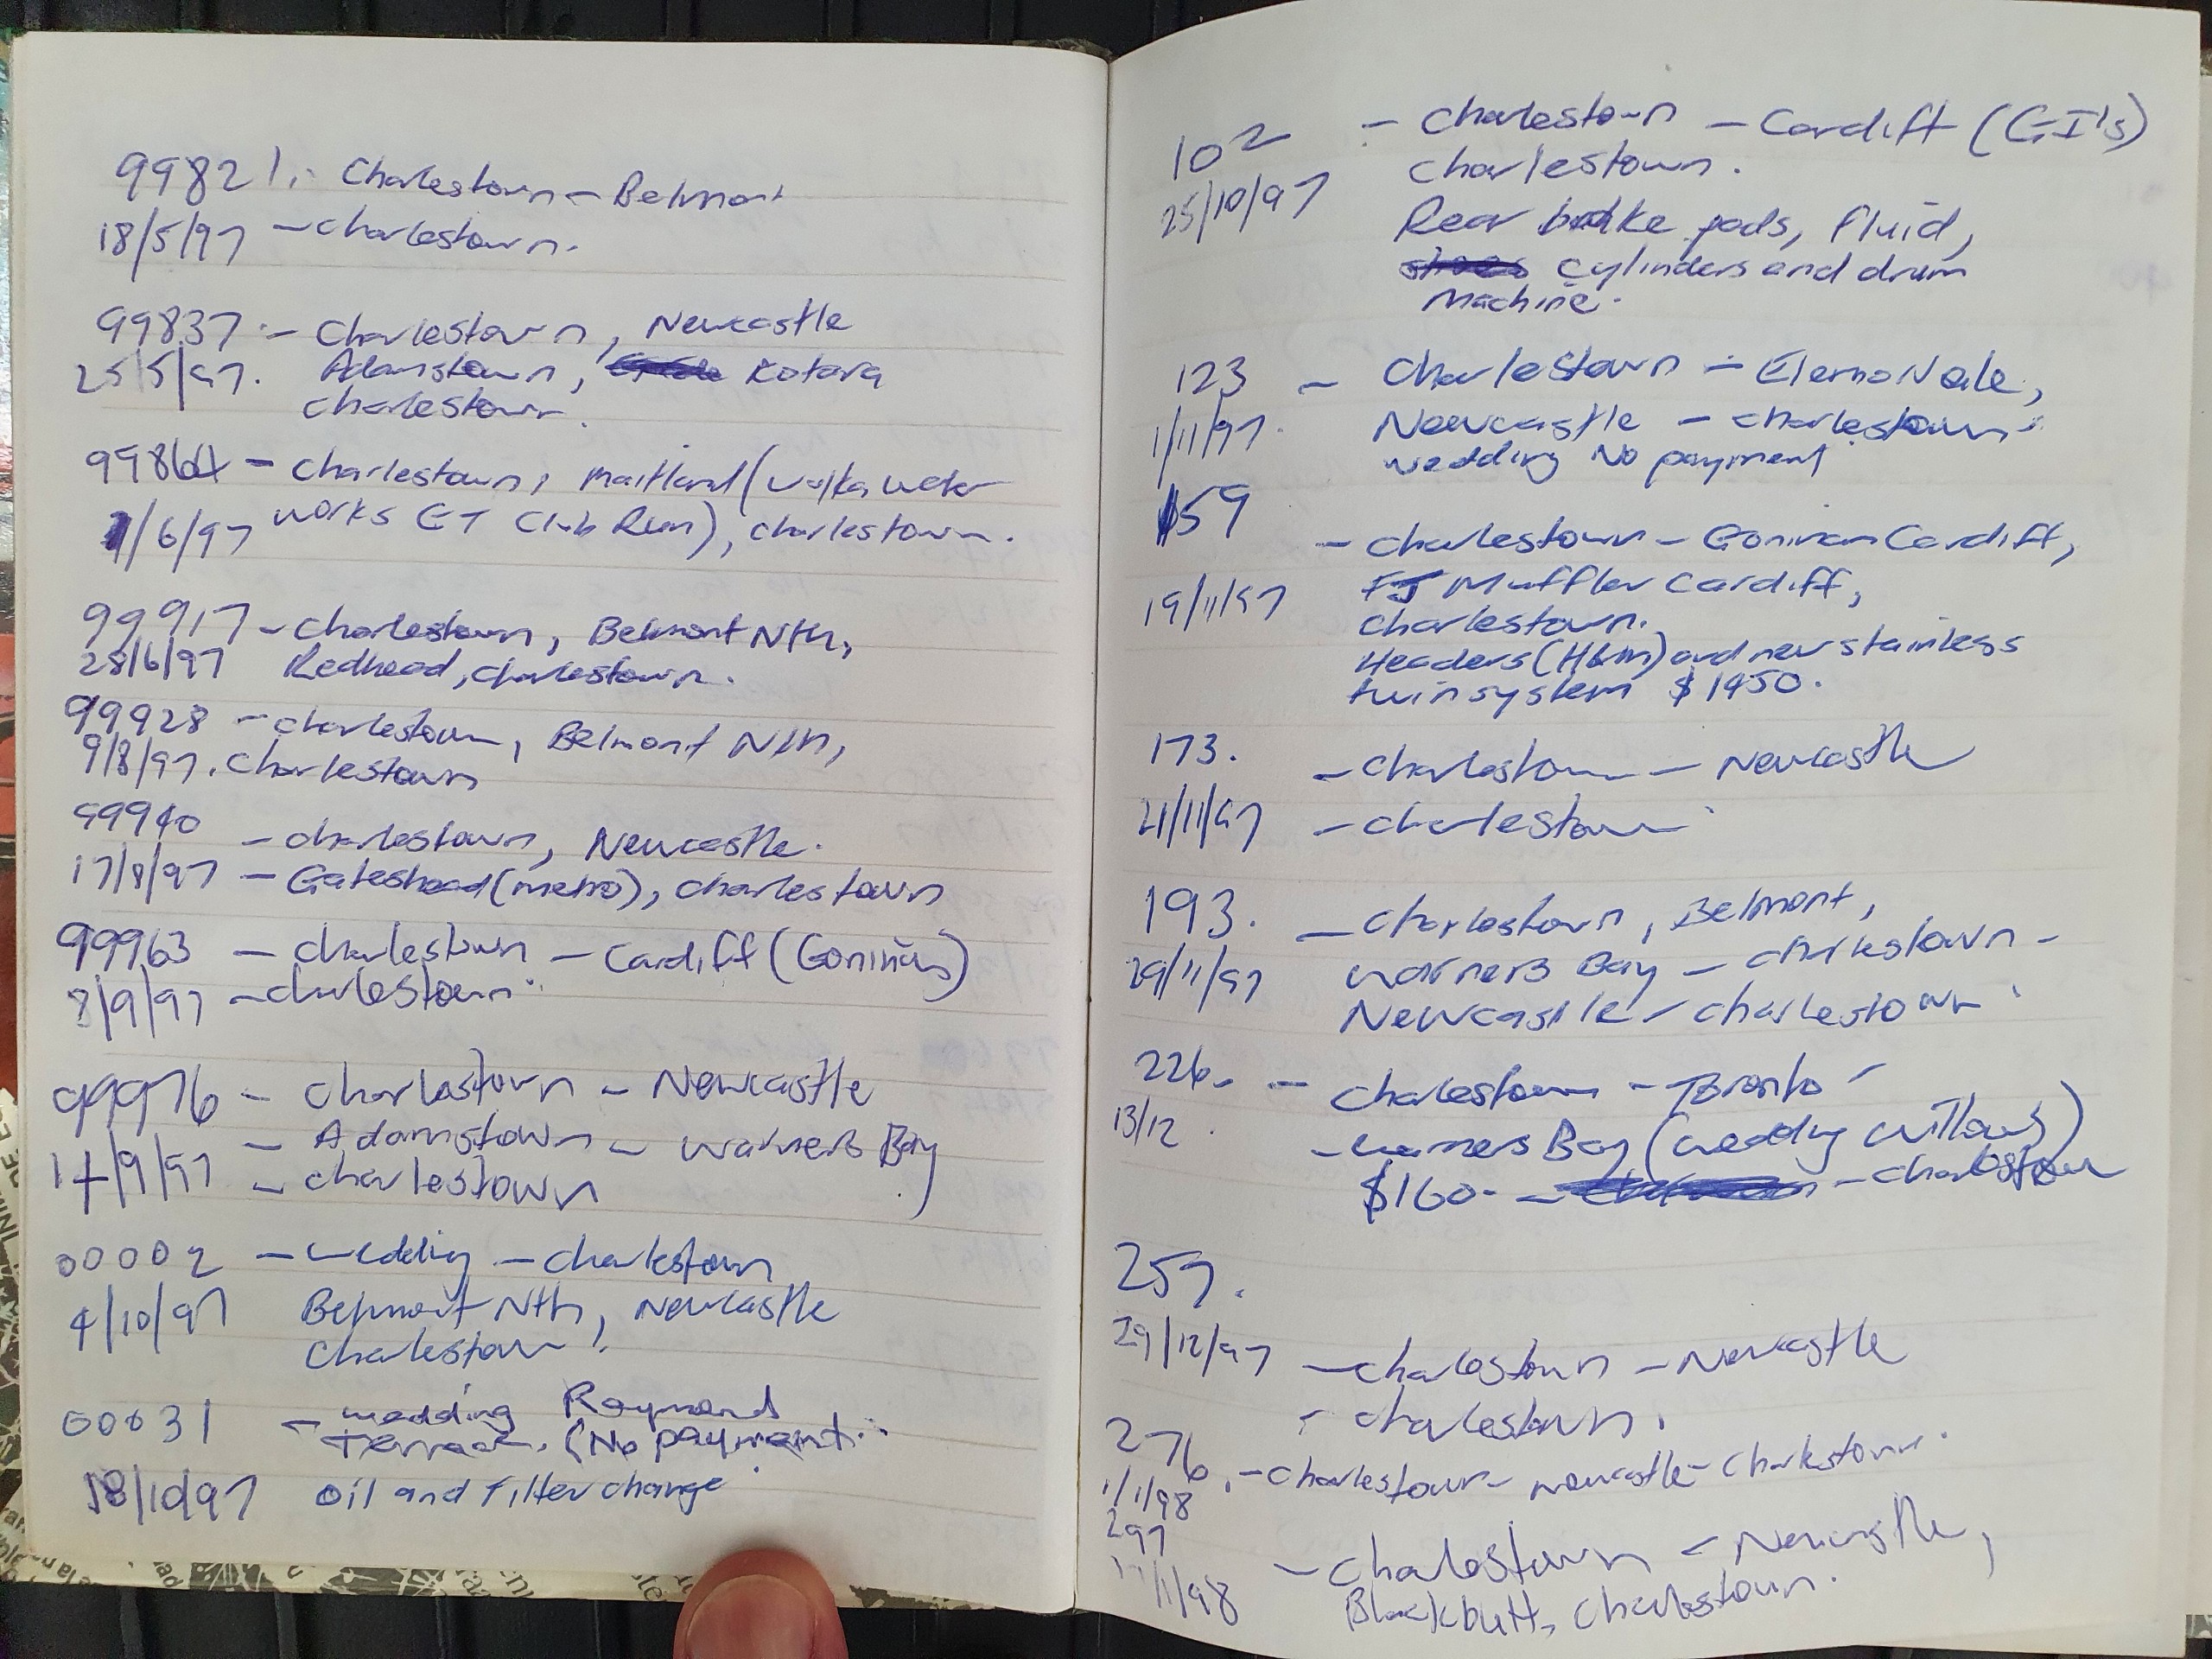 99821. Charlestown - Belmont
18/5/97 - Charlestown.
99837 - Charlestown, Newcastle
25/5/97. Adamstown, Kotara
Charlestown.
99864 - Charlestown, Maitland (Walka Water
1/6/97 works ET Club Run), Charlestown.
99917 - Charlestown, Belmont Nth,
28/6/97 Redhead, Charlestown.
99928 - Charlestown, Belmont Nth,
9/8/97. Charlestown
99940
- Charlestown, Newcastle.
17/8/97 - Gateshead (metro), Charlestown
99963 - Charlestown - Cardiff (Goninans)
8/9/97 - Charlestown.
99976 - Charlestown - Newcastle
- Adamstown - Warners Bay
14/9/97 - Charlestown
00002 - Wedding - Charlestown
4/10/97 Belmont Nth, Newcastle
Charlestown.
00031 - wedding Raymond
Terrace. (No payment.
18/10/97 Oil and Filter change
102 - Charlestown - Cardiff (GI's)
Charlestown.
25/10/97 Rear brake pads, Fluid,
cylinders and drum
Machine.
123 - Charlestown - Elemo Vale,
1/11/97. Newcastle - Charlestown.
wedding No payment
159
- Charlestown - Goninan Cardiff,
19/11/97 FJ Muffler Cardiff,
Charlestown.
Headers (H&M) and new stainless
twin system $1950.
173. - Charlestown - Newcastle
21/11/97 - Charlestown
193. - Charlestown, Belmont,
29/11/97 Warners Bay - Charlestown -
Newcastle - Charlestown.
226. - Charlestown - Toronto -
13/12. - Warners Bay (wedding willows)
$160. - - Charlestown
257.
29/12/97 - Charlestown - Newcastle
- Charlestown.
276. - Charlestown - Newcastle - Charlestown.
1/1/98
297
- Charlestown - Newcastle,
/1/98 Blackbutt, Charlestown.